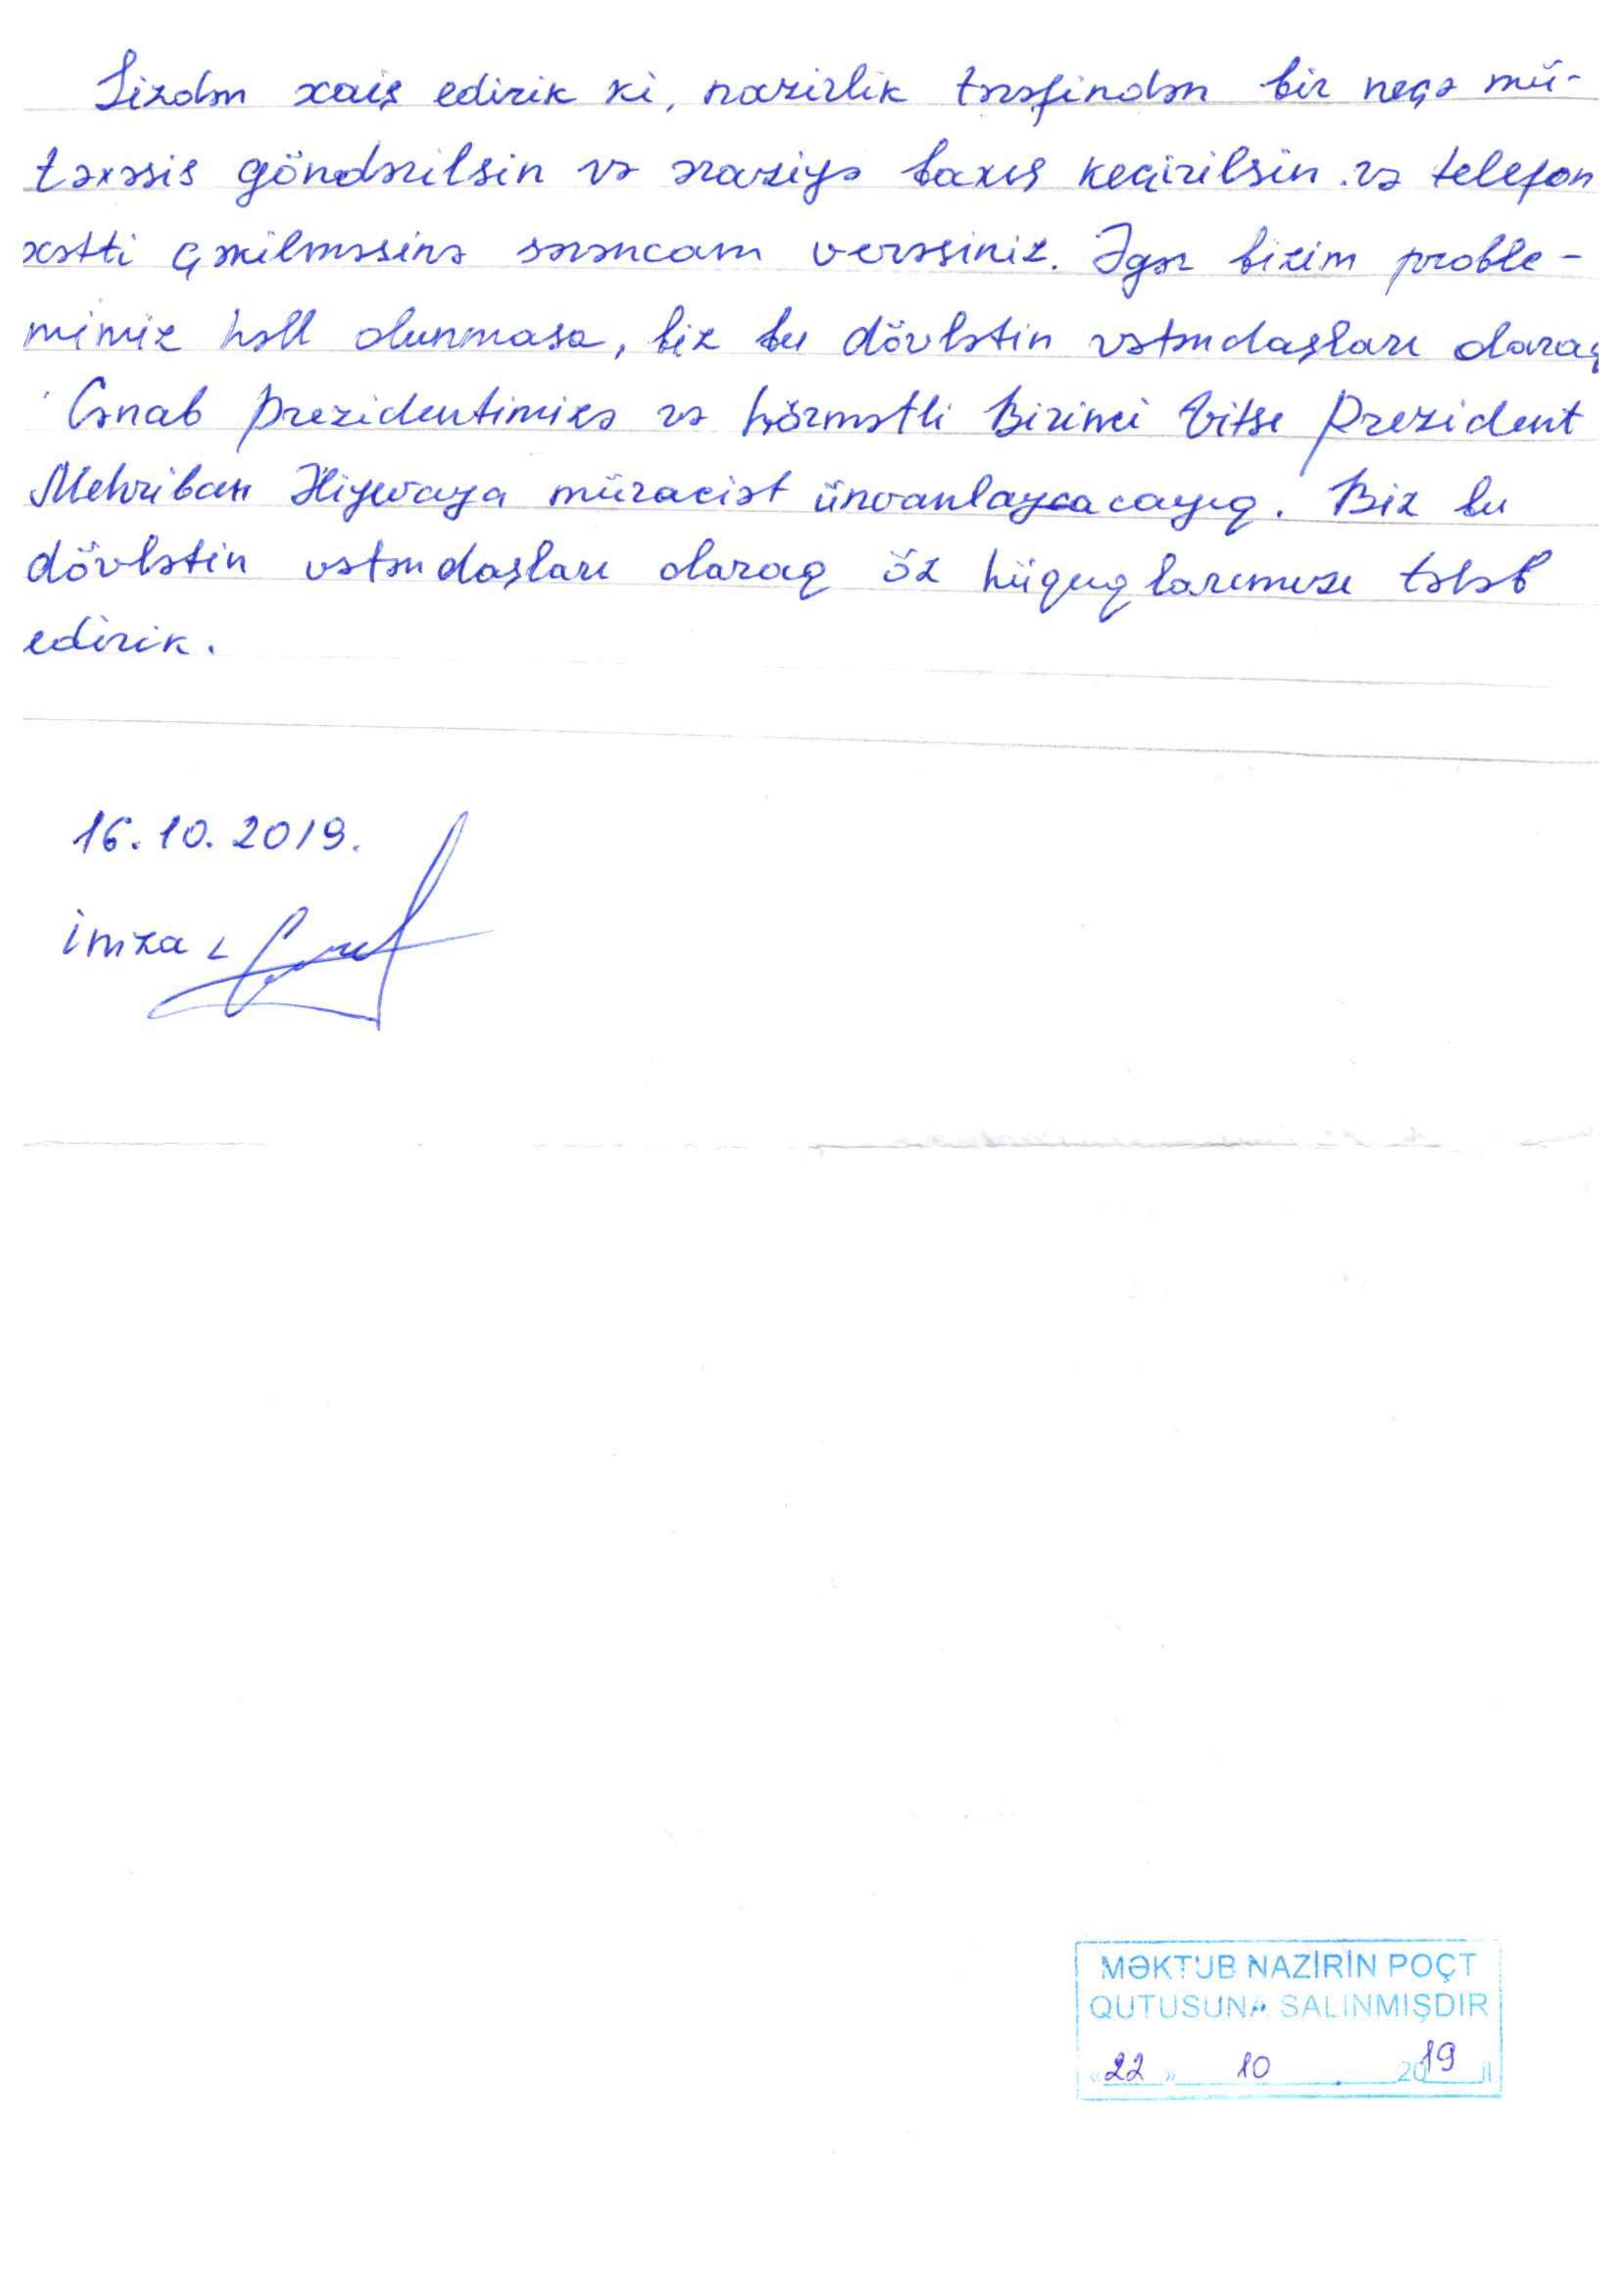 Sizdən xaiş edirik ki, nazirlik tərəfindən bir neçə mü-
təxəsis göndərilsin və əraziyə baxış keçirilsin və telefon
xətti çəkilməsinə sərəncam verəsiniz. Əgər bizim proble-
mimiz həll olunmasa, biz bu dövlətin vətəndaşları olaraq
Cənab Prezidentimizə və hörmətli Birinci Vitse Prezident
Mehriban Əliyevaya müraciət ünvanlayacayıq. Biz bu
dövlətin vətəndaşları olaraq öz hüquqlarımızı tələb
edirik.
16.10.2019.
imza:
MƏKTUB NAZİRİN POÇT
QUTUSUNA SALINMIŞDIR
«22» 10 2019 il